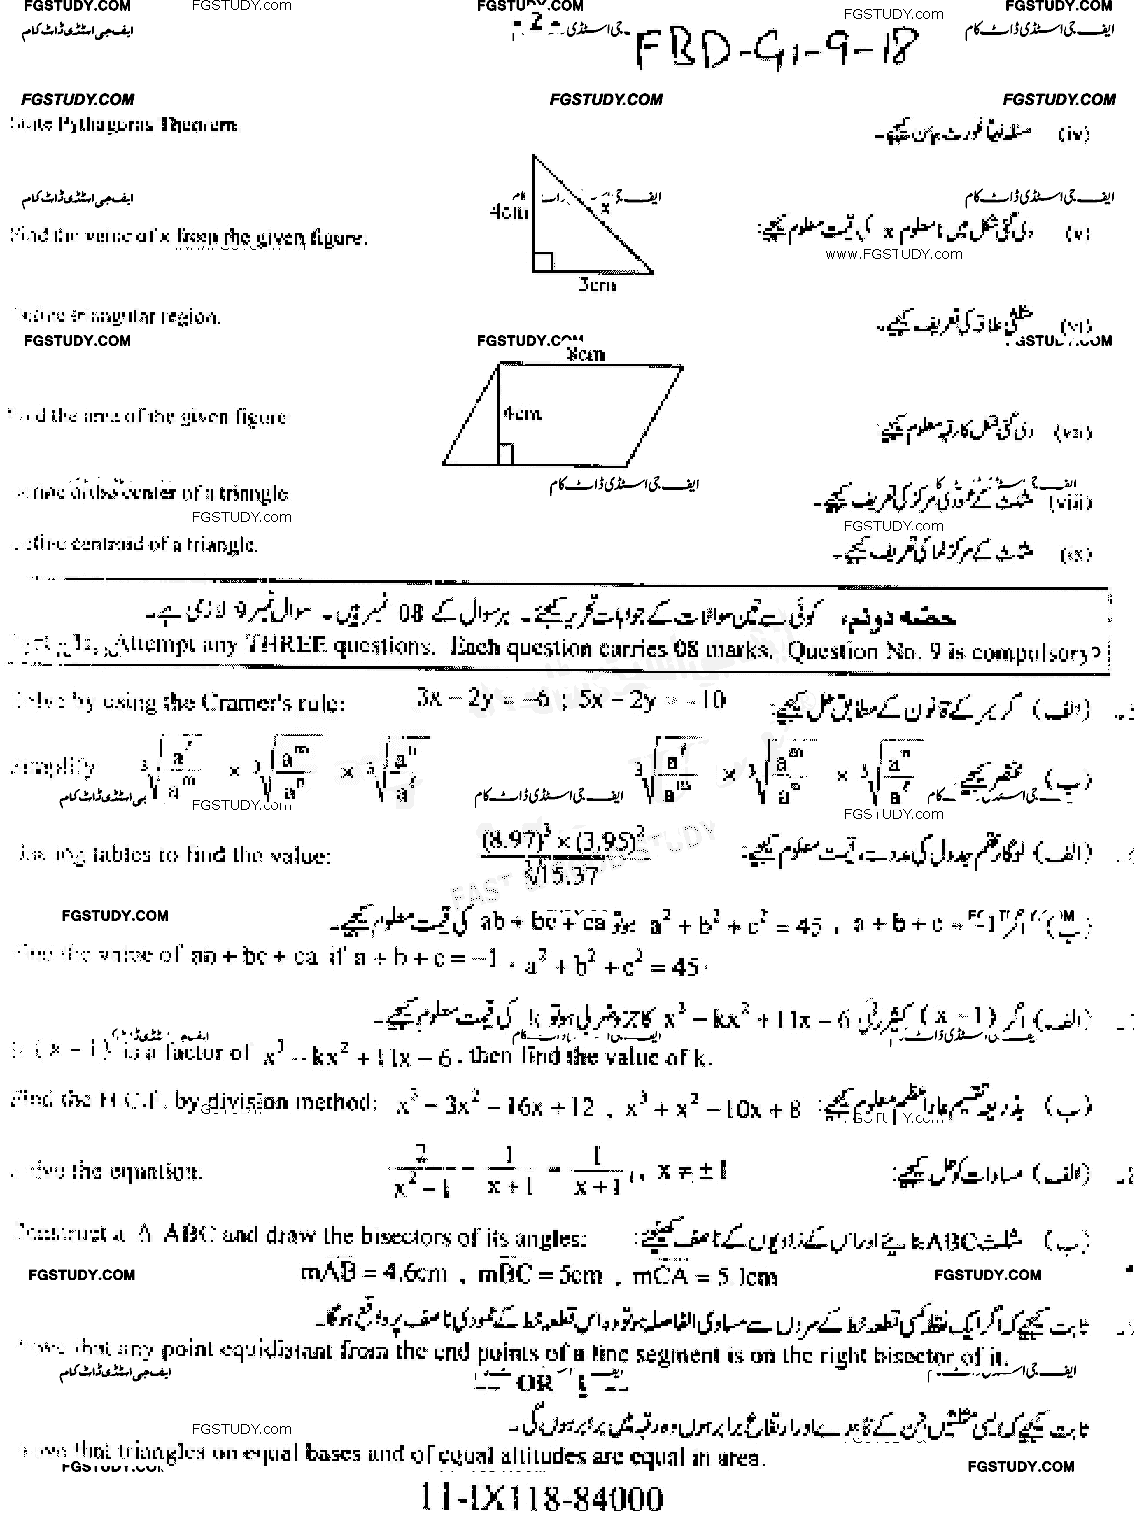 FGSTUDY.COM FGSTUDY.com FGSTUDY.COM FGSTUDY.com FGSTUDY.COM
ایف جی اسٹڈی ڈاٹ کام - 2 - ایف جی اسٹڈی ڈاٹ کام
FBD-G1-9-18
FGSTUDY.COM FGSTUDY.COM FGSTUDY.COM
State Pythagoras Theorem مسئلہ فیثا غورث بیان کیجئے۔ (iv)
ایف جی اسٹڈی ڈاٹ کام ایف جی اسٹڈی ڈاٹ کام
4cm x
Find the value of x from the given figure. دی گئی شکل میں نامعلوم x کی قیمت معلوم کیجئے: (v)
www.FGSTUDY.com
3cm
triangular region. مثلثی علاقہ کی تعریف کیجئے۔ (vi)
FGSTUDY.COM FGSTUDY.COM FGSTUDY.COM
8cm
4cm
Find the area of the given figure دی گئی شکل کا رقبہ معلوم کیجئے: (vii)
ایف جی اسٹڈی ڈاٹ کام
center of a triangle مثلث کے عمودی مرکز کی تعریف کیجئے۔ (viii)
FGSTUDY.com FGSTUDY.com
centroid of a triangle. مثلث کے مرکز نما کی تعریف کیجئے۔ (ix)
حصہ دوئم، کوئی سے تین سوالات کے جوابات تحریر کیجئے۔ ہر سوال کے 08 نمبر ہیں۔ سوال نمبر 9 لازمی ہے۔
Attempt any THREE questions. Each question carries 08 marks. Question No. 9 is compulsory
Solve by using the Cramer's rule: 3x − 2y = −6 ; 5x − 2y = −10 (الف) کریمر کے قانون کے مطابق حل کیجئے:
Simplify ∛(a^ℓ/a^m) × ∛(a^m/a^n) × ∛(a^n/a^ℓ) ∛(a^ℓ/a^m) × ∛(a^m/a^n) × ∛(a^n/a^ℓ) مختصر کیجئے (ب)
ایف جی اسٹڈی ڈاٹ کام
FGSTUDY.com FGSTUDY.com
tables to find the value: (8.97)³ × (3.95)² / ∛15.37 (الف) لوگارتھم جدول کی مدد سے قیمت معلوم کیجئے:
FGSTUDY.COM
(ب) اگر a + b + c = −1 , a² + b² + c² = 45 ہو تو ab + bc + ca کی قیمت معلوم کیجئے۔
Find the value of ab + bc + ca if a + b + c = −1 , a² + b² + c² = 45.
(الف) اگر (x − 1) کثیر رقمی x³ − kx² + 11x − 6 کا جزو ضربی ہو تو k کی قیمت معلوم کیجئے۔
(x − 1) is a factor of x³ − kx² + 11x − 6, then find the value of k.
Find the H.C.F. by division method: x³ − 3x² − 16x + 12 , x³ + x² − 10x + 8 بذریعہ تقسیم عاد اعظم معلوم کیجئے: (ب)
FGSTUDY.com
Solve the equation. 2/(x² − 1) − 1/(x + 1) = 1/(x + 1), x ≠ ±1 (الف) مساوات کو حل کیجئے:
Construct a Δ ABC and draw the bisectors of its angles: (ب) مثلث ABC بنائیے اور اس کے زاویوں کے ناصف کھینچئے:
mAB = 4.6cm , mBC = 5cm , mCA = 5.1cm
FGSTUDY.COM FGSTUDY.COM
ثابت کیجئے کہ اگر ایک نقطہ کسی قطعہ خط کے سروں سے مساوی الفاصلہ ہو تو وہ اس قطعہ خط کے عمودی ناصف پر واقع ہوگا۔
that any point equidistant from the end points of a line segment is on the right bisector of it.
ایف جی اسٹڈی ڈاٹ کام OR
ثابت کیجئے کہ ایسی مثلثیں جن کے قاعدے اور ارتفاع برابر ہوں وہ رقبہ میں برابر ہوں گی۔
FGSTUDY.com
that triangles on equal bases and of equal altitudes are equal in area.
FGSTUDY.COM FGSTUDY.COM
11-IX118-84000